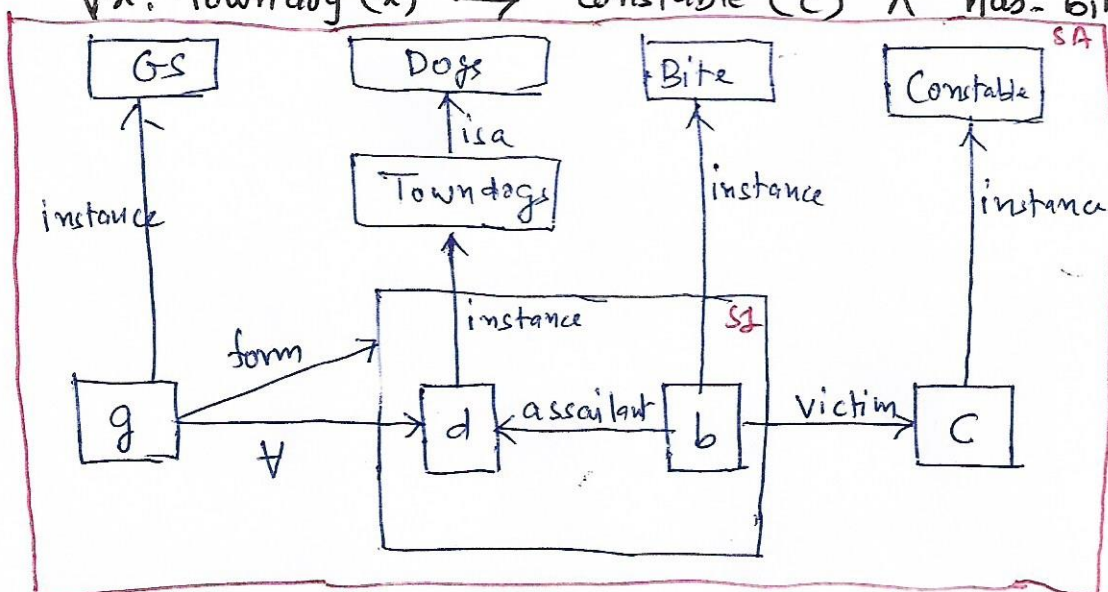 ∀x: Towndog (x) → Constable (C) ∧ has-bit
SA
GS
Dogs
Bite
Constable
isa
Towndogs
instance
instance
instance
instance
S1
form
g
d
assailant
b
victim
C
∀